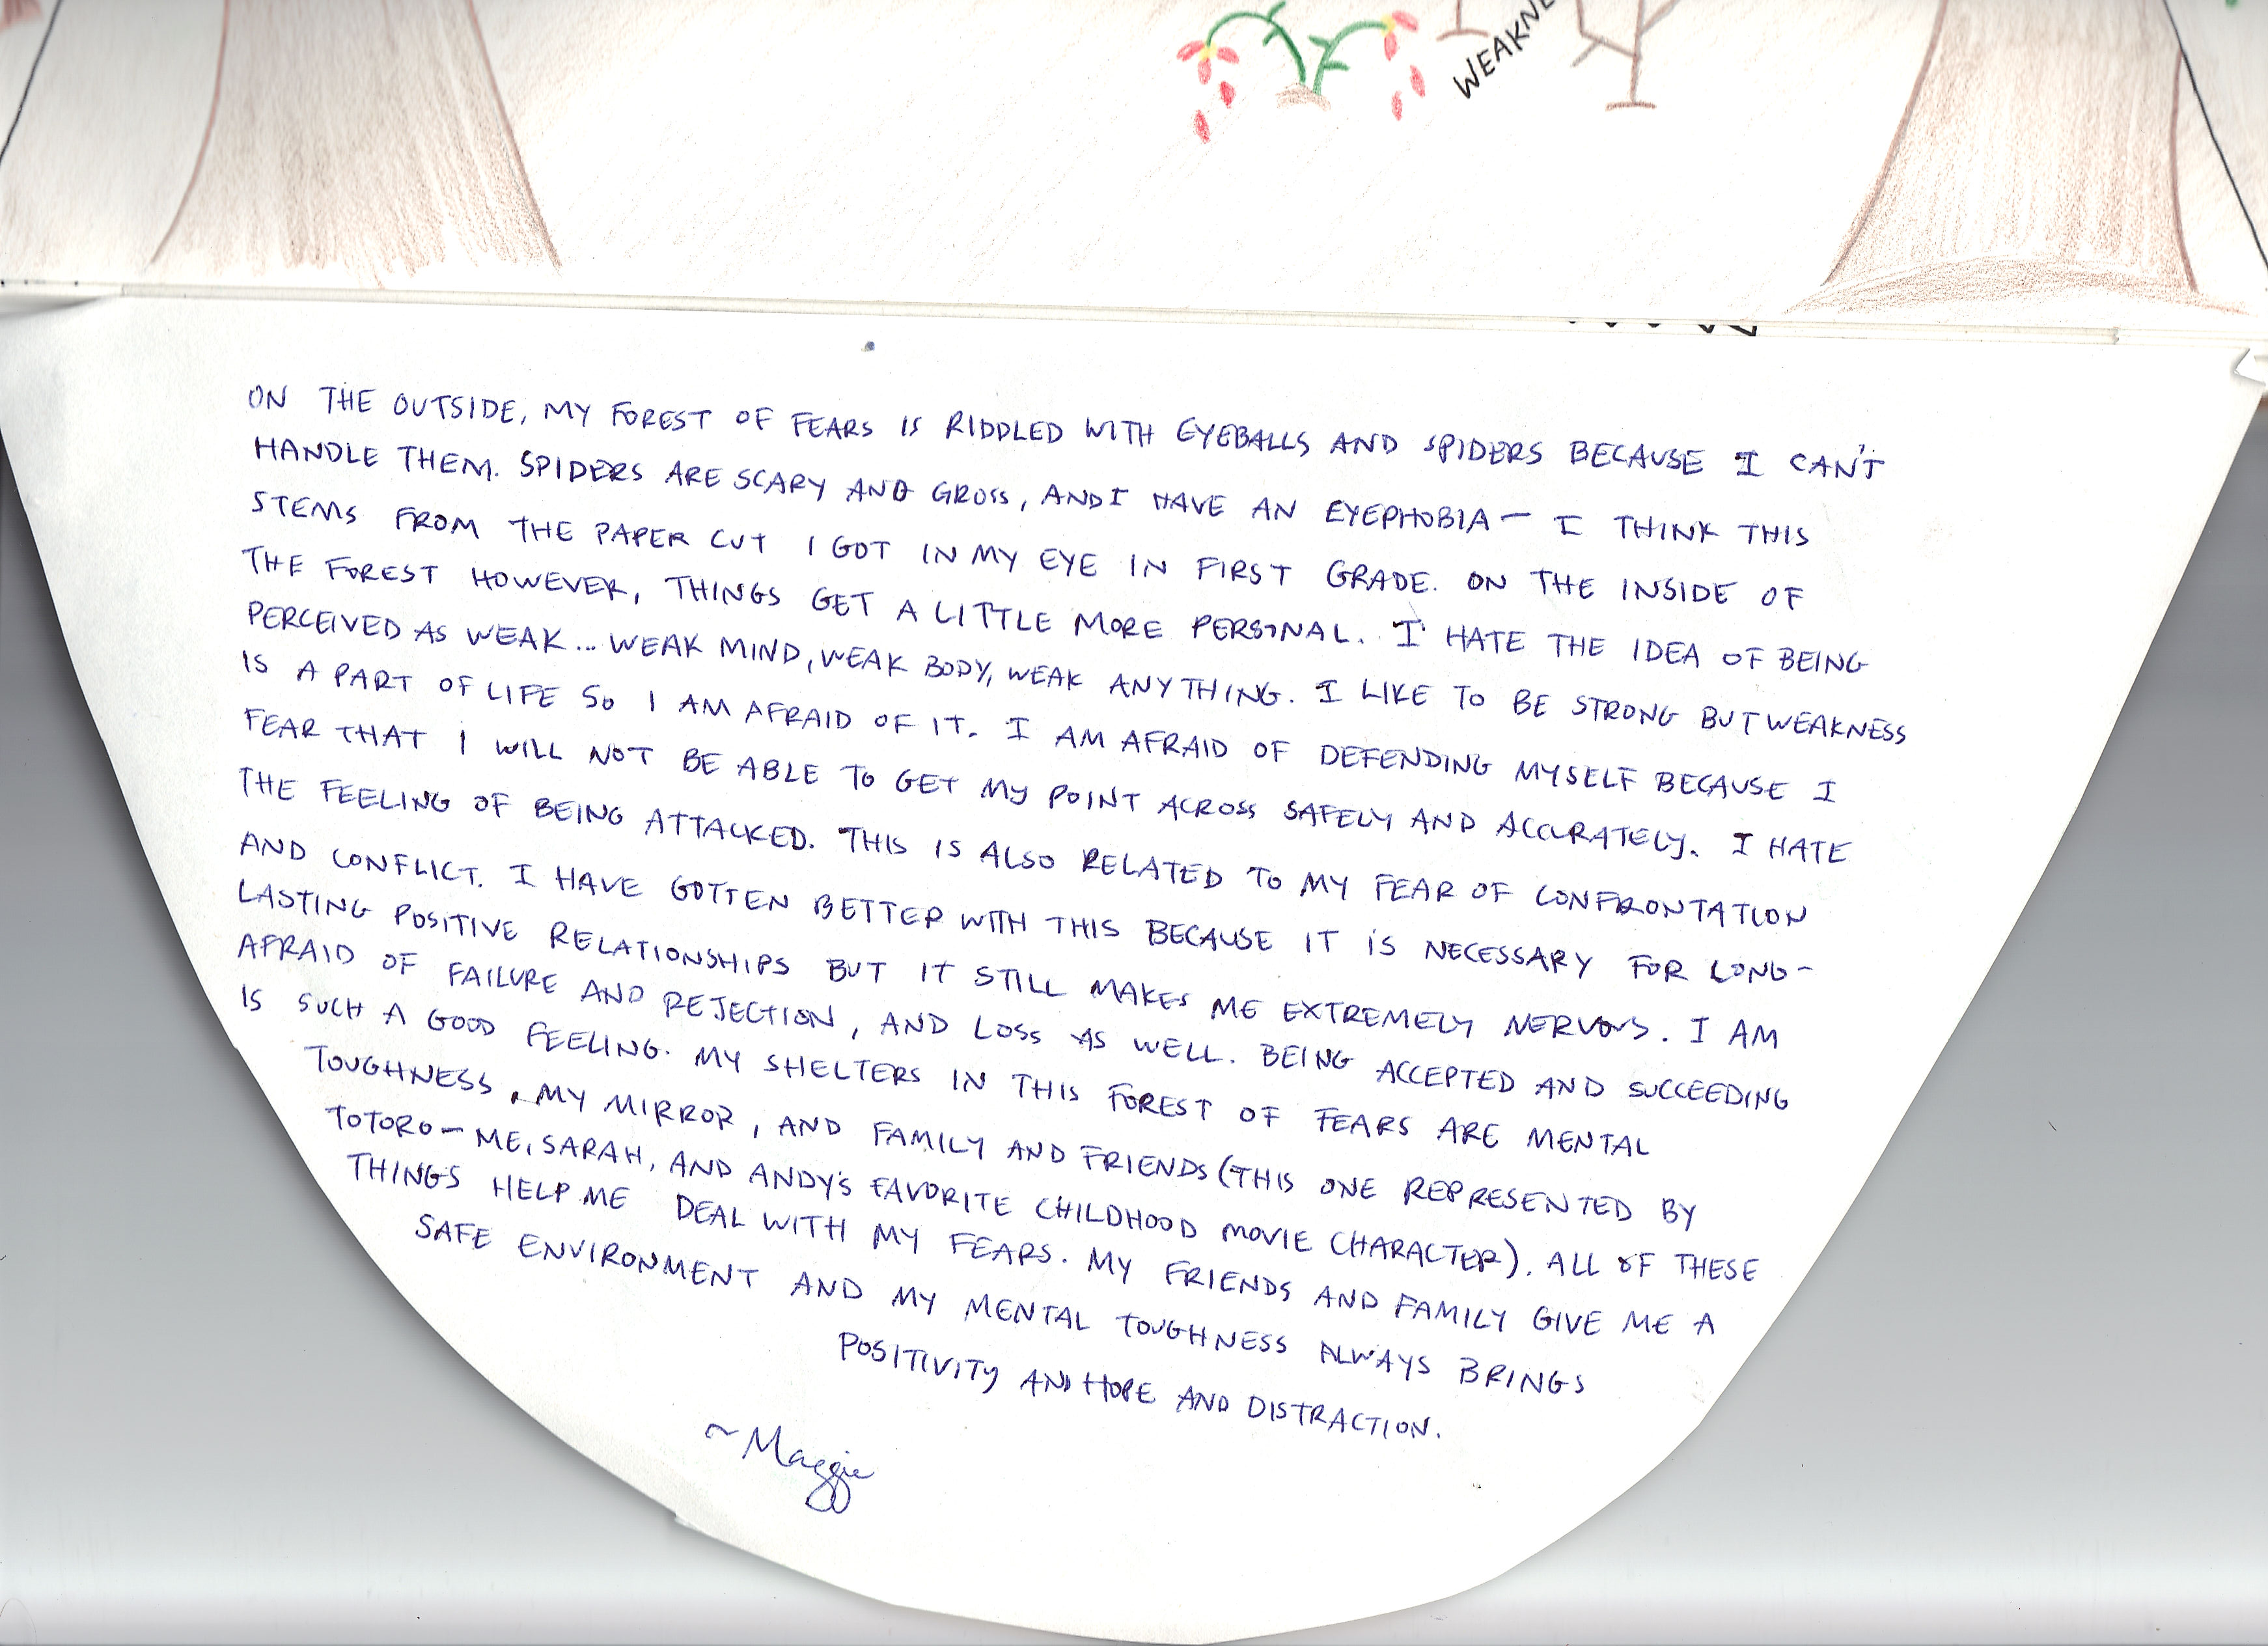 WEAKNE
ON THE OUTSIDE, MY FOREST OF FEARS IS RIDDLED WITH EYEBALLS AND SPIDERS BECAUSE I CAN'T
HANDLE THEM. SPIDERS ARE SCARY AND GROSS, AND I HAVE AN EYEPHOBIA — I THINK THIS
STEMS FROM THE PAPER CUT I GOT IN MY EYE IN FIRST GRADE. ON THE INSIDE OF
THE FOREST HOWEVER, THINGS GET A LITTLE MORE PERSONAL. I HATE THE IDEA OF BEING
PERCEIVED AS WEAK... WEAK MIND, WEAK BODY, WEAK ANYTHING. I LIKE TO BE STRONG BUT WEAKNESS
IS A PART OF LIFE SO I AM AFRAID OF IT. I AM AFRAID OF DEFENDING MYSELF BECAUSE I
FEAR THAT I WILL NOT BE ABLE TO GET MY POINT ACROSS SAFELY AND ACCURATELY. I HATE
THE FEELING OF BEING ATTACKED. THIS IS ALSO RELATED TO MY FEAR OF CONFRONTATION
AND CONFLICT. I HAVE GOTTEN BETTER WITH THIS BECAUSE IT IS NECESSARY FOR LONG-
LASTING POSITIVE RELATIONSHIPS BUT IT STILL MAKES ME EXTREMELY NERVOUS. I AM
AFRAID OF FAILURE AND REJECTION, AND LOSS AS WELL. BEING ACCEPTED AND SUCCEEDING
IS SUCH A GOOD FEELING. MY SHELTERS IN THIS FOREST OF FEARS ARE MENTAL
TOUGHNESS, MY MIRROR, AND FAMILY AND FRIENDS (THIS ONE REPRESENTED BY
TOTORO — ME, SARAH, AND ANDY'S FAVORITE CHILDHOOD MOVIE CHARACTER). ALL OF THESE
THINGS HELP ME DEAL WITH MY FEARS. MY FRIENDS AND FAMILY GIVE ME A
SAFE ENVIRONMENT AND MY MENTAL TOUGHNESS ALWAYS BRINGS
POSITIVITY AND HOPE AND DISTRACTION.
~Maggie